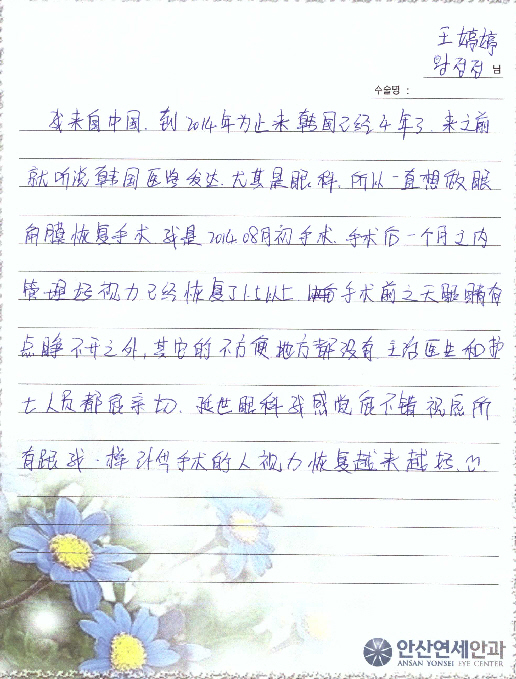 王婷婷
왕정정 님
수술명 :
我来自中国. 到2014年为止来韩国已经4年了. 来之前
就听说韩国医学发达. 尤其是眼科. 所以一直想做眼
角膜恢复手术. 我是2014.08月初手术. 手术后一个月之内
管理好视力已经恢复了1.5以上. 手术前三天眼睛有
点睁不开之外, 其它的不方便地方都没有. 主治医生和护
士人员都很亲切. 延世眼科我感觉很不错. 祝愿所
有跟我一样 手术的人视力恢复越来越好.
안산연세안과
ANSAN YONSEI EYE CENTER